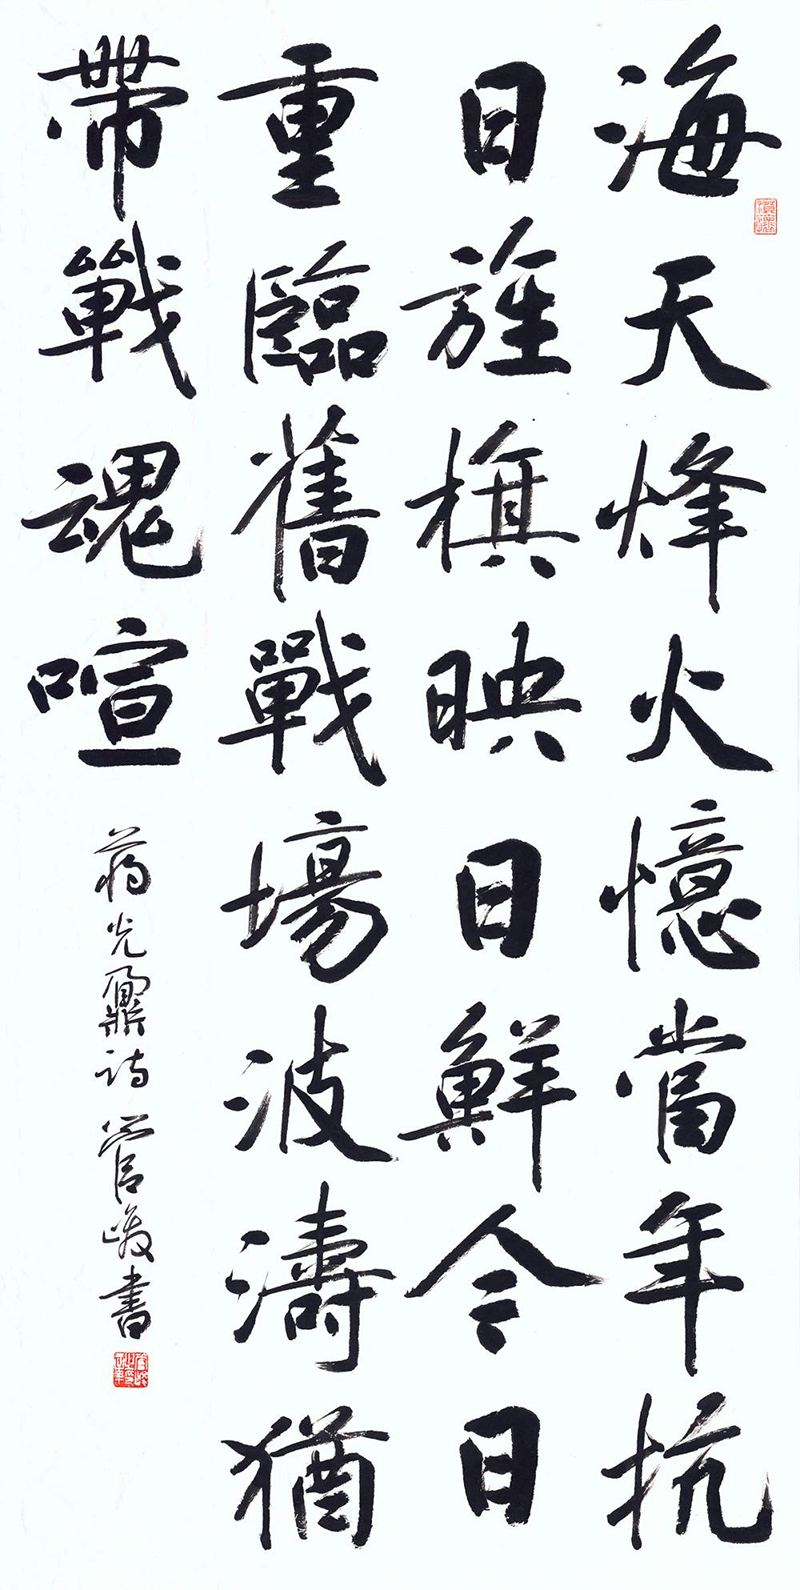 海天烽火憶當年抗
日旌旗映日鮮今日
重臨舊戰場波濤猶
帶戰魂喧
蔣光鼐詩 管峻書